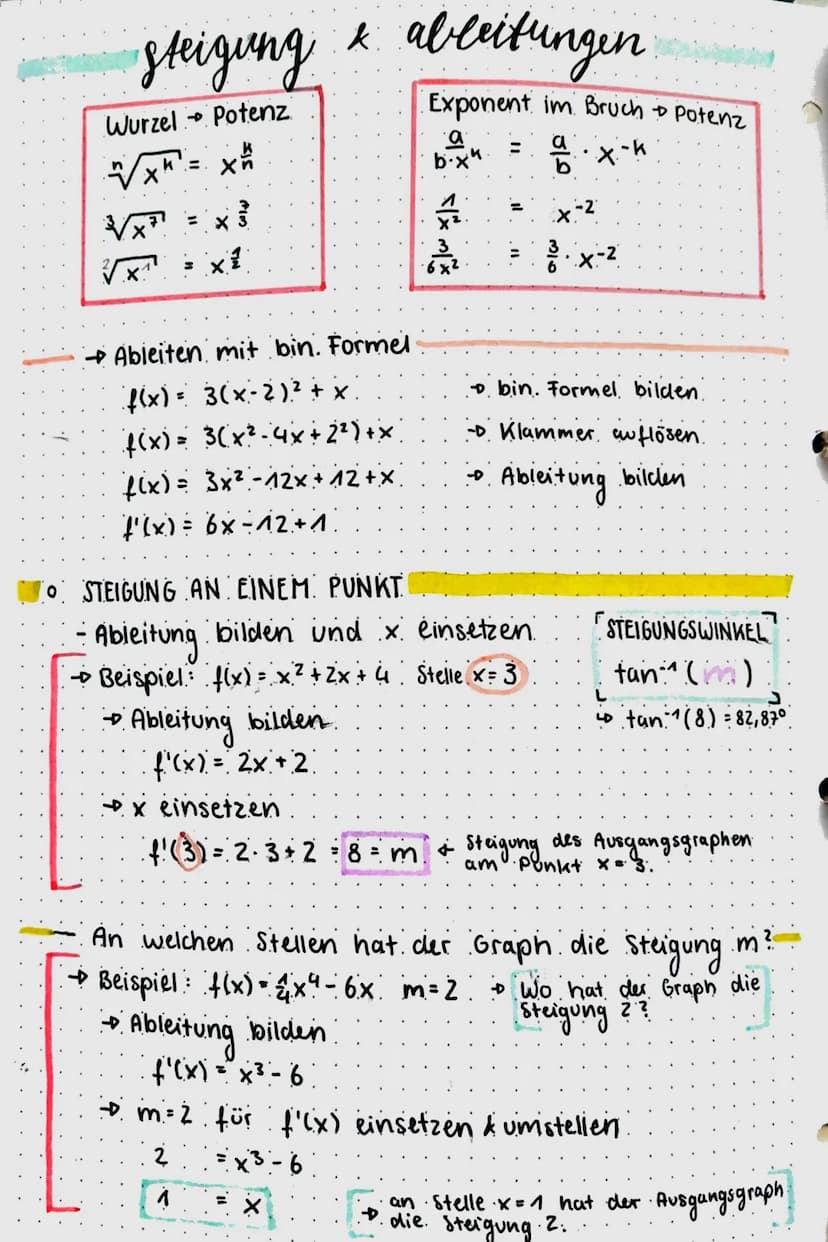 steigung & ableitungen
Wurzel → Potenz
ⁿ√xᵏ = x^(k/n)
³√x⁷ = x^(7/3)
²√x¹ = x^(1/2)
Exponent im Bruch → Potenz
a/(b·xᵏ) = a/b · x⁻ᵏ
1/x² = x⁻²
3/(6x²) = 3/6 · x⁻²
→ Ableiten mit bin. Formel
f(x) = 3(x-2)² + x → bin. Formel bilden
f(x) = 3(x²-4x+2²)+x → Klammer auflösen
f(x) = 3x²-12x+12+x → Ableitung bilden
f'(x) = 6x-12+1
STEIGUNG AN EINEM PUNKT
- Ableitung bilden und x einsetzen
→ Beispiel: f(x) = x²+2x+4 Stelle x=3
→ Ableitung bilden
f'(x) = 2x+2
→ x einsetzen
f'(3) = 2·3+2 = 8 = m ← Steigung des Ausgangsgraphen
am Punkt x=3.
STEIGUNGSWINKEL
tan⁻¹(m)
↳ tan⁻¹(8) = 82,87°
An welchen Stellen hat der Graph die Steigung m?
→ Beispiel: f(x) = 1/4x⁴ - 6x m=2 → Wo hat der Graph die
Steigung 2?
→ Ableitung bilden
f'(x) = x³-6
→ m=2 für f'(x) einsetzen & umstellen
2 = x³-6
1 = x
→ an Stelle x=1 hat der Ausgangsgraph
die Steigung 2.